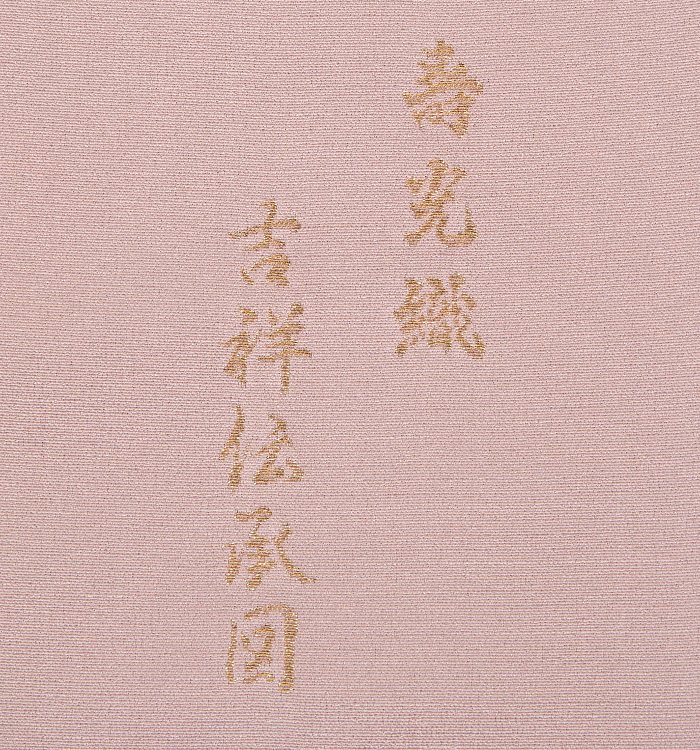 壽光織
吉祥伝承図